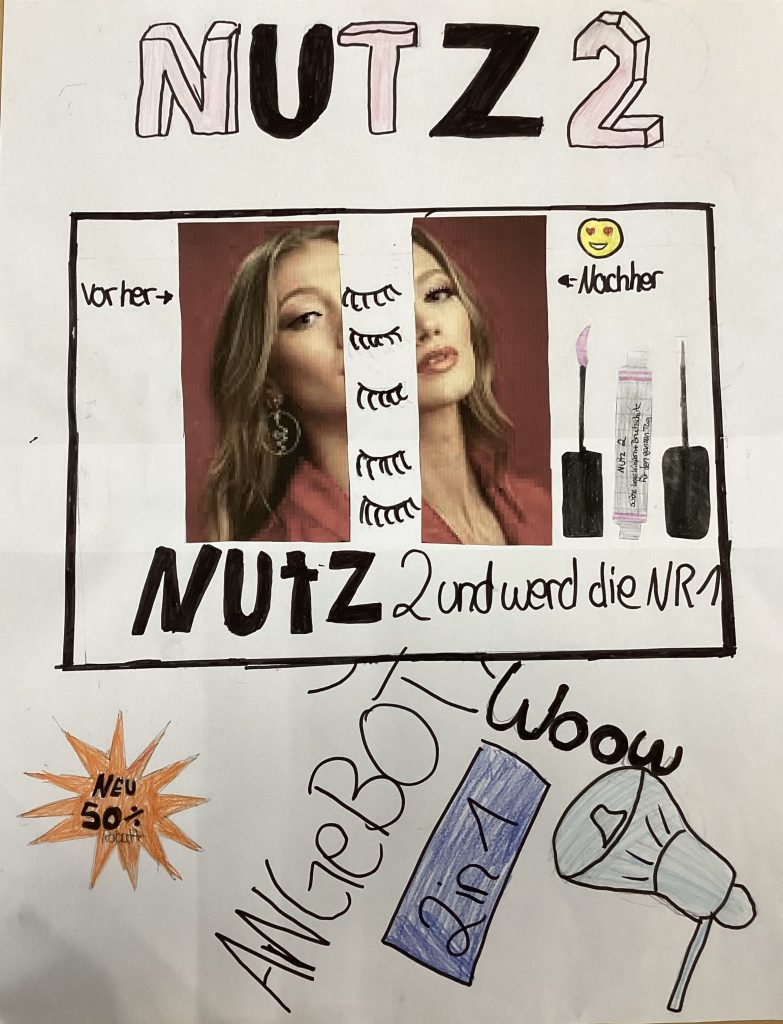 NUTZ 2
Vorher→
←Nachher
NUTZ 2
für den ganzen Tag
NUtZ 2 und werd die NR1
Woow
ANGeBOT
2 in 1
NEU
50%
Rabatt